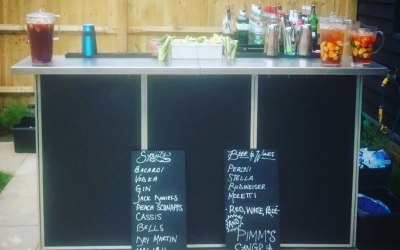 Spirits
BACARDI
VODKA
GIN
JACK DANIELS
PEACH SCHNAPPS
CASSIS
BELLS
DRY MARTINI
BEER & WINES
PERONI
STELLA
BUDWEISER
MORETTI
RED, WHITE, ROSÉ
AND
PIMM'S
SANGRIA